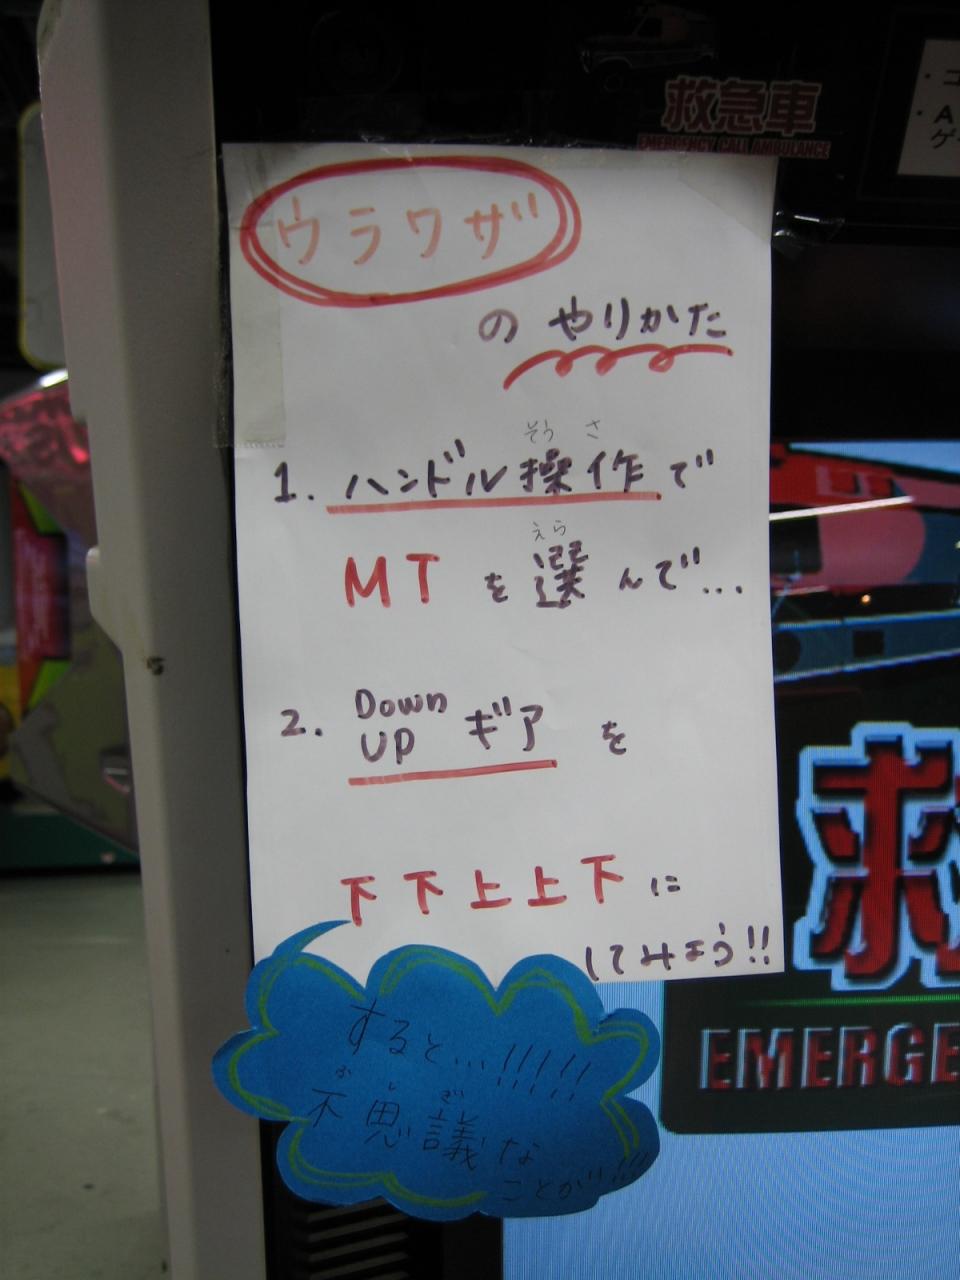 救急車
EMERGENCY CALL AMBULANCE
ウラワザ
の やりかた
そう さ
1. ハンドル操作で
えら
MT を選んで...
2. Down
UP ギア を
下下上上下に
してみよう!!
すると...!!!!!
ふ し ぎ
不思議な
ことが!!!
救
EMERGE